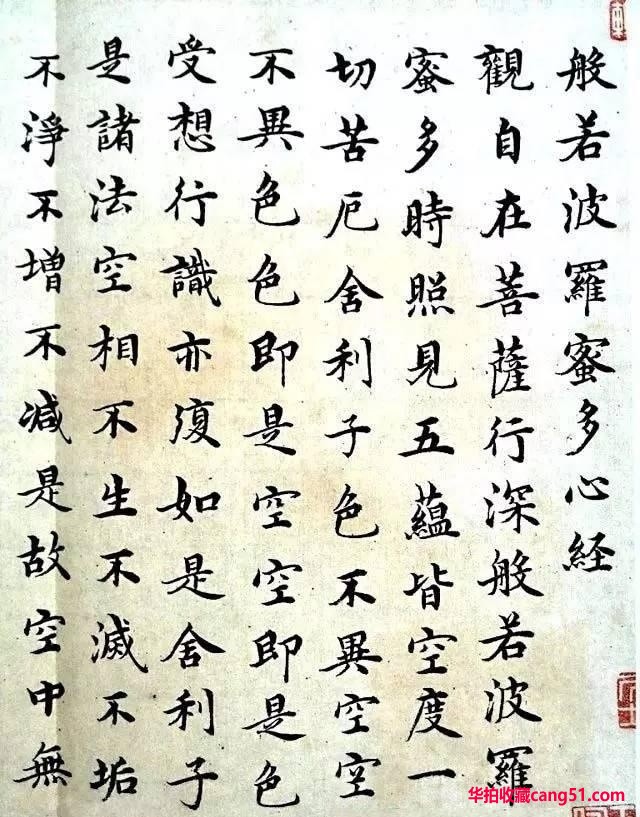 般若波羅蜜多心経
觀自在菩薩行深般若波羅
蜜多時照見五蘊皆空度一
切苦厄舍利子色不異空空
不異色色即是空空即是色
受想行識亦復如是舍利子
是諸法空相不生不滅不垢
不淨不增不減是故空中無
华拍收藏cang51.com